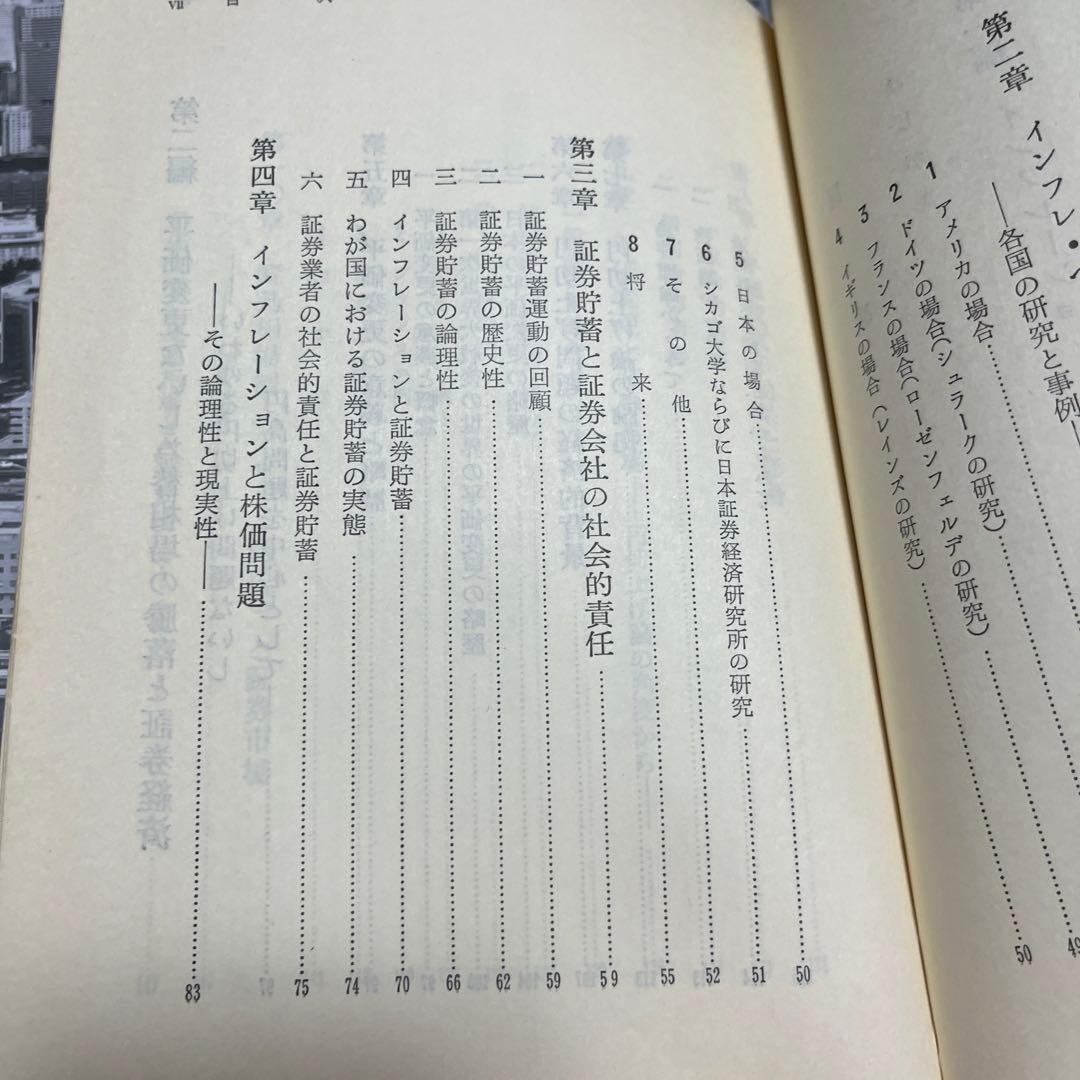 第二章 インフレ・
――各国の研究と事例―
1 アメリカの場合……
2 ドイツの場合（シュラークの研究）……
3 フランスの場合（ローゼンフェルデの研究）……49
4 イギリスの場合（レインズの研究）……50
5 日本の場合……50
6 シカゴ大学ならびに日本証券経済研究所の研究……51
7 その他……52
8 将来……55
第三章 証券貯蓄と証券会社の社会的責任……59
一 証券貯蓄運動の回顧……59
二 証券貯蓄の歴史性……62
三 証券貯蓄の論理性……66
四 インフレーションと証券貯蓄……70
五 わが国における証券貯蓄の実態……74
六 証券業者の社会的責任と証券貯蓄……75
第四章 インフレーションと株価問題
――その論理性と現実性――……83
vii